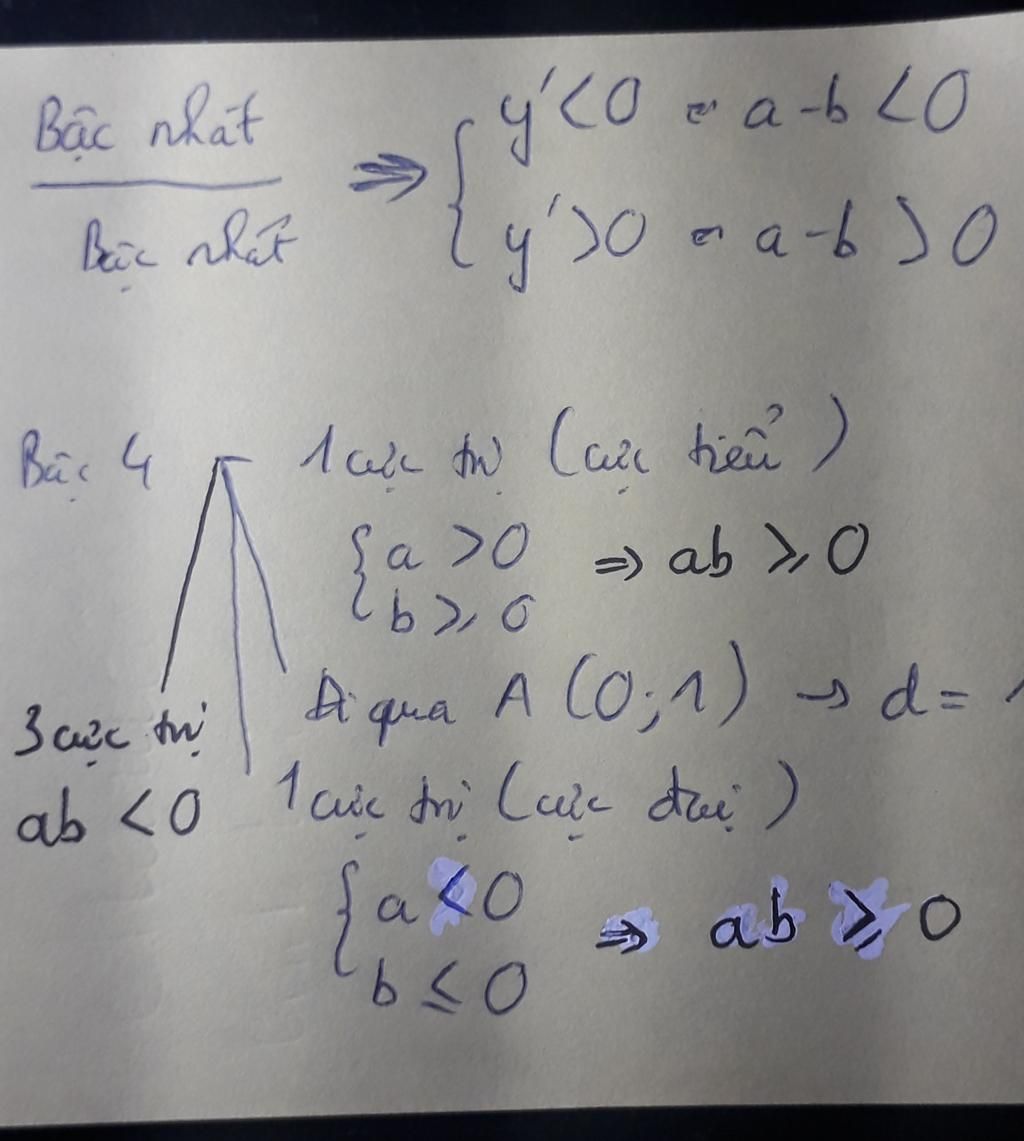 Bậc nhất
Bậc nhất
⇒ { y' < 0 a - b < 0
y' > 0 a - b > 0
Bậc 4
1 cực trị (cực tiểu)
{ a > 0 ⇒ ab ⩾ 0
b ⩾ 0
Đi qua A (0; 1) → d = 1
3 cực trị
ab < 0
1 cực trị (cực đại)
{ a < 0 ⇒ ab ⩾ 0
b ≤ 0